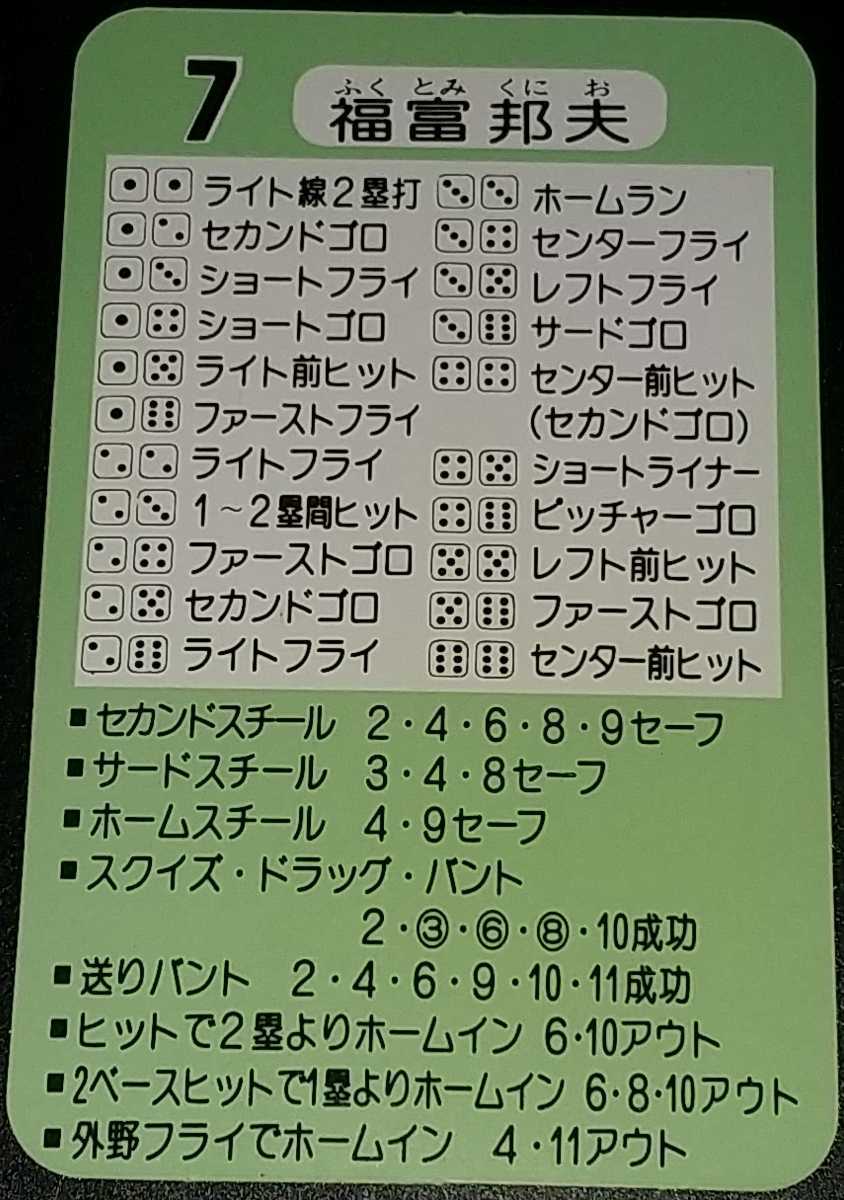 7
ふく とみ くに お
福富邦夫
ライト線2塁打
セカンドゴロ
ショートフライ
ショートゴロ
ライト前ヒット
ファーストフライ
ライトフライ
1~2塁間ヒット
ファーストゴロ
セカンドゴロ
ライトフライ
ホームラン
センターフライ
レフトフライ
サードゴロ
センター前ヒット
(セカンドゴロ)
ショートライナー
ピッチャーゴロ
レフト前ヒット
ファーストゴロ
センター前ヒット
■セカンドスチール 2・4・6・8・9セーフ
■サードスチール 3・4・8セーフ
■ホームスチール 4・9セーフ
■スクイズ・ドラッグ・バント
2・③・⑥・⑧・10成功
■送りバント 2・4・6・9・10・11成功
■ヒットで2塁よりホームイン 6・10アウト
■2ベースヒットで1塁よりホームイン 6・8・10アウト
■外野フライでホームイン 4・11アウト